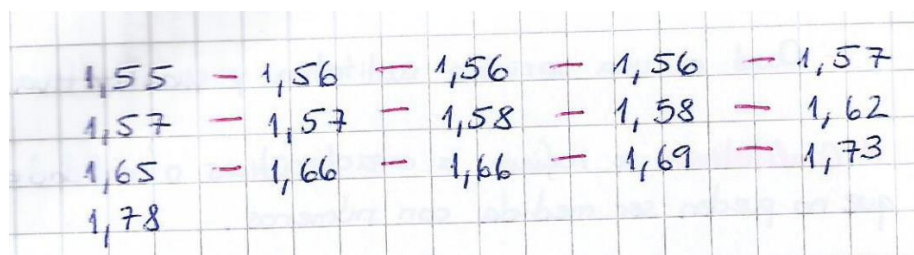 1,55 — 1,56 — 1,56 — 1,56 — 1,57
1,57 — 1,57 — 1,58 — 1,58 — 1,62
1,65 — 1,66 — 1,66 — 1,69 — 1,73
1,78